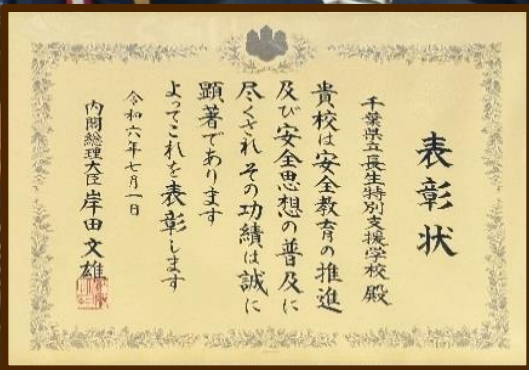 表彰状
千葉県立長生特別支援学校 殿
貴校は安全教育の推進
及び安全思想の普及に
尽くされ その功績は誠に
顕著であります
よってこれを表彰します
令和六年七月一日
内閣総理大臣 岸田文雄